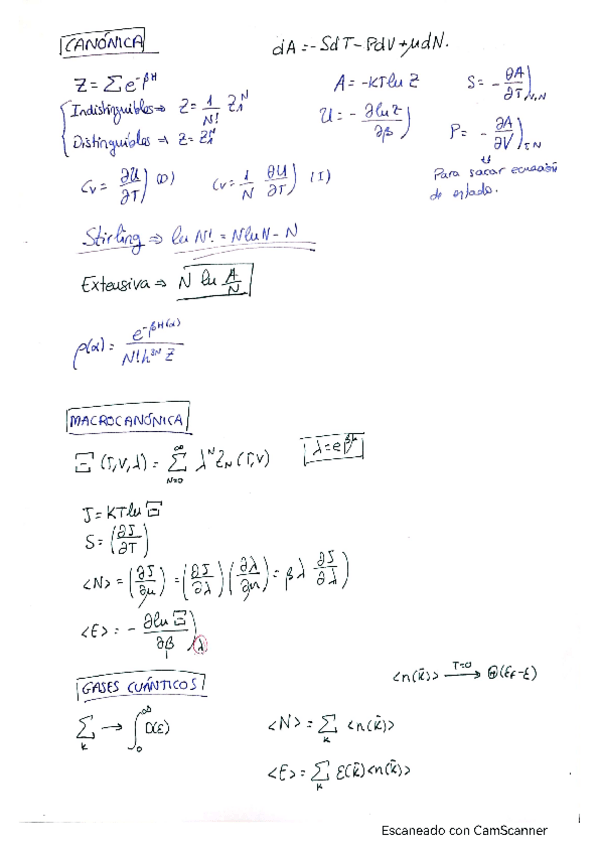 CANÓNICA
dA = -SdT - PdV + μdN.
Z = Σ e^{-βH}
A = -KT ln Z
S = -∂A/∂T)_{V,N}
Indistinguibles → Z = 1/N! Z₁^N
U = -∂lnZ/∂β)
P = -∂A/∂V)_{T,N}
Distinguibles → Z = Z₁^N
Para sacar ecuación de estado.
Cv = ∂U/∂T) (D)
Cv = 1/N ∂U/∂T) (I)
Stirling ⇒ ln N! = N ln N - N
Extensiva ⇒ N ln A/N
ρ(α) = e^{-βH(α)} / N! h^{3N} Z
MACROCANÓNICA
Ξ (T,V,λ) = Σ_{N=0}^{∞} λ^N Z_N (T,V)
λ = e^{βμ}
J = KT ln Ξ
S = (∂J/∂T)
<N> = (∂J/∂μ) = (∂J/∂λ)(∂λ/∂μ) = βλ ∂J/∂λ)
<E> = -∂ln Ξ/∂β)_λ
GASES CUÁNTICOS
<n(k̄)> —T=0→ Θ(ε_F - ε)
Σ_k → ∫_0^∞ D(ε)
<N> = Σ_k <n(k̄)>
<E> = Σ_k ε(k̄) <n(k̄)>
Escaneado con CamScanner